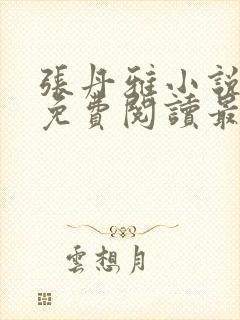 張丹雅小說
免費閱讀最
雲想月